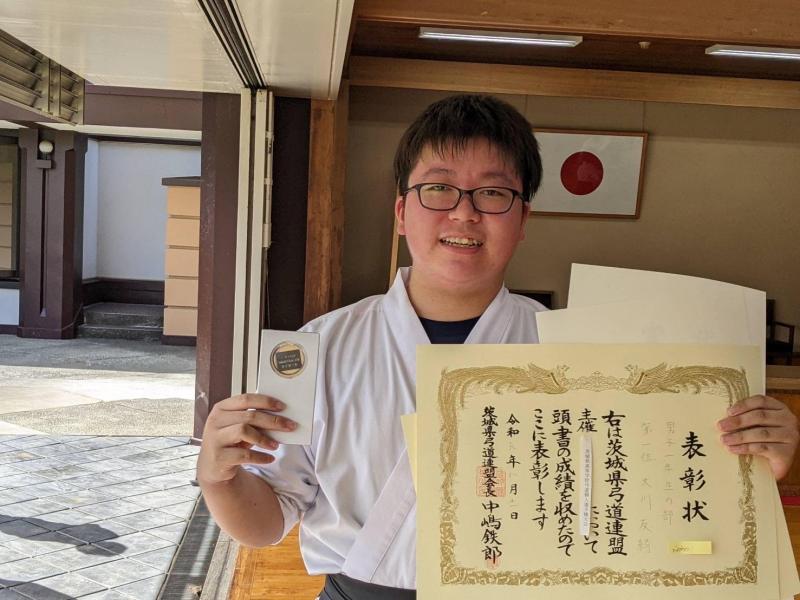 表彰状
男子一年生の部
第一位 大川友綺
右は茨城県弓道連盟
主催 において
頭書の成績を収めたので
ここに表彰します
令和 年 月 日
茨城県弓道連盟会長 中嶋鉄郎